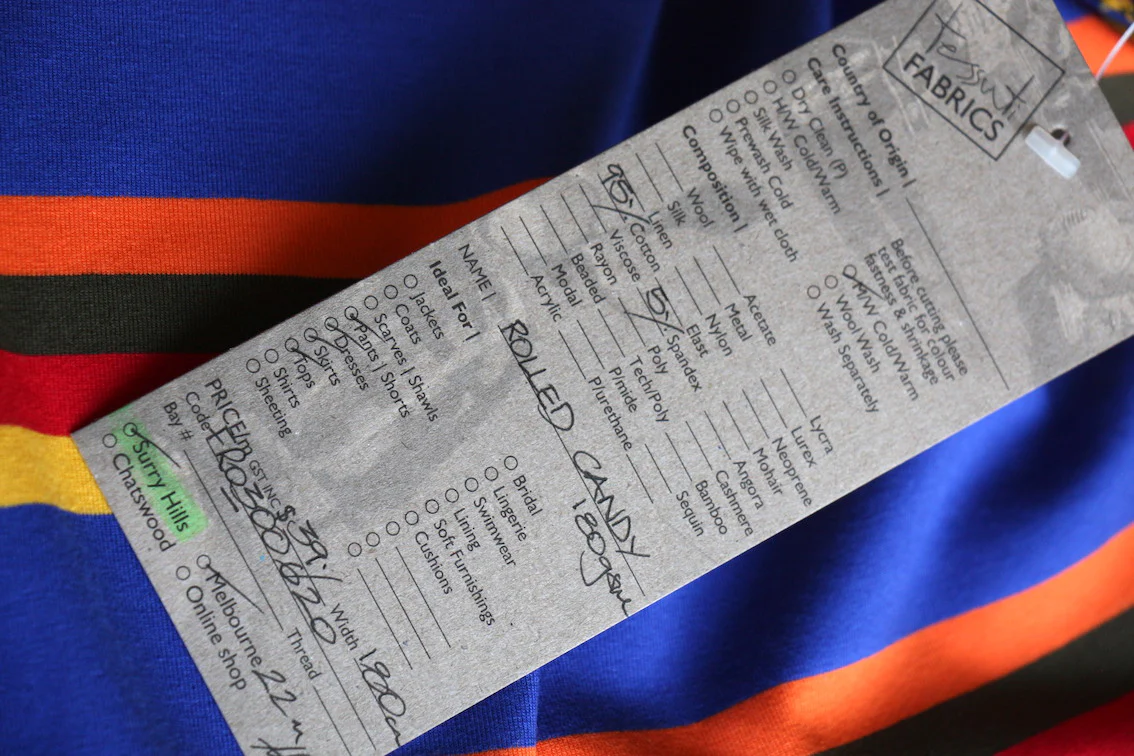 Tessuti
FABRICS
Country of Origin |
Care Instructions |
Dry Clean (P)
H/W Cold/Warm
Silk Wash
Prewash Cold
Wipe with wet cloth
Before cutting please
test fabric for colour
fastness & shrinkage
H/W Cold/Warm
Wool Wash
Wash Separately
Composition |
Wool
Silk
Linen
95% Cotton
Viscose
Rayon
Beaded
Modal
Acrylic
Acetate
Metal
Nylon
Elast
5% Spandex
Poly
Tech/Poly
P/mide
P/urethane
Lycra
Lurex
Neoprene
Mohair
Angora
Cashmere
Bamboo
Sequin
NAME | ROLLED CANDY
180gsm
Ideal For |
Jackets
Coats
Scarves | Shawls
Pants | Shorts
Dresses
Skirts
Tops
Shirts
Sheeting
Bridal
Lingerie
Swimwear
Lining
Soft Furnishings
Cushions
PRICE/m GST INC $ 39/ Width 180cm
Code
Bay # Thread
Surry Hills
Chatswood
Melbourne 22 m
Online shop